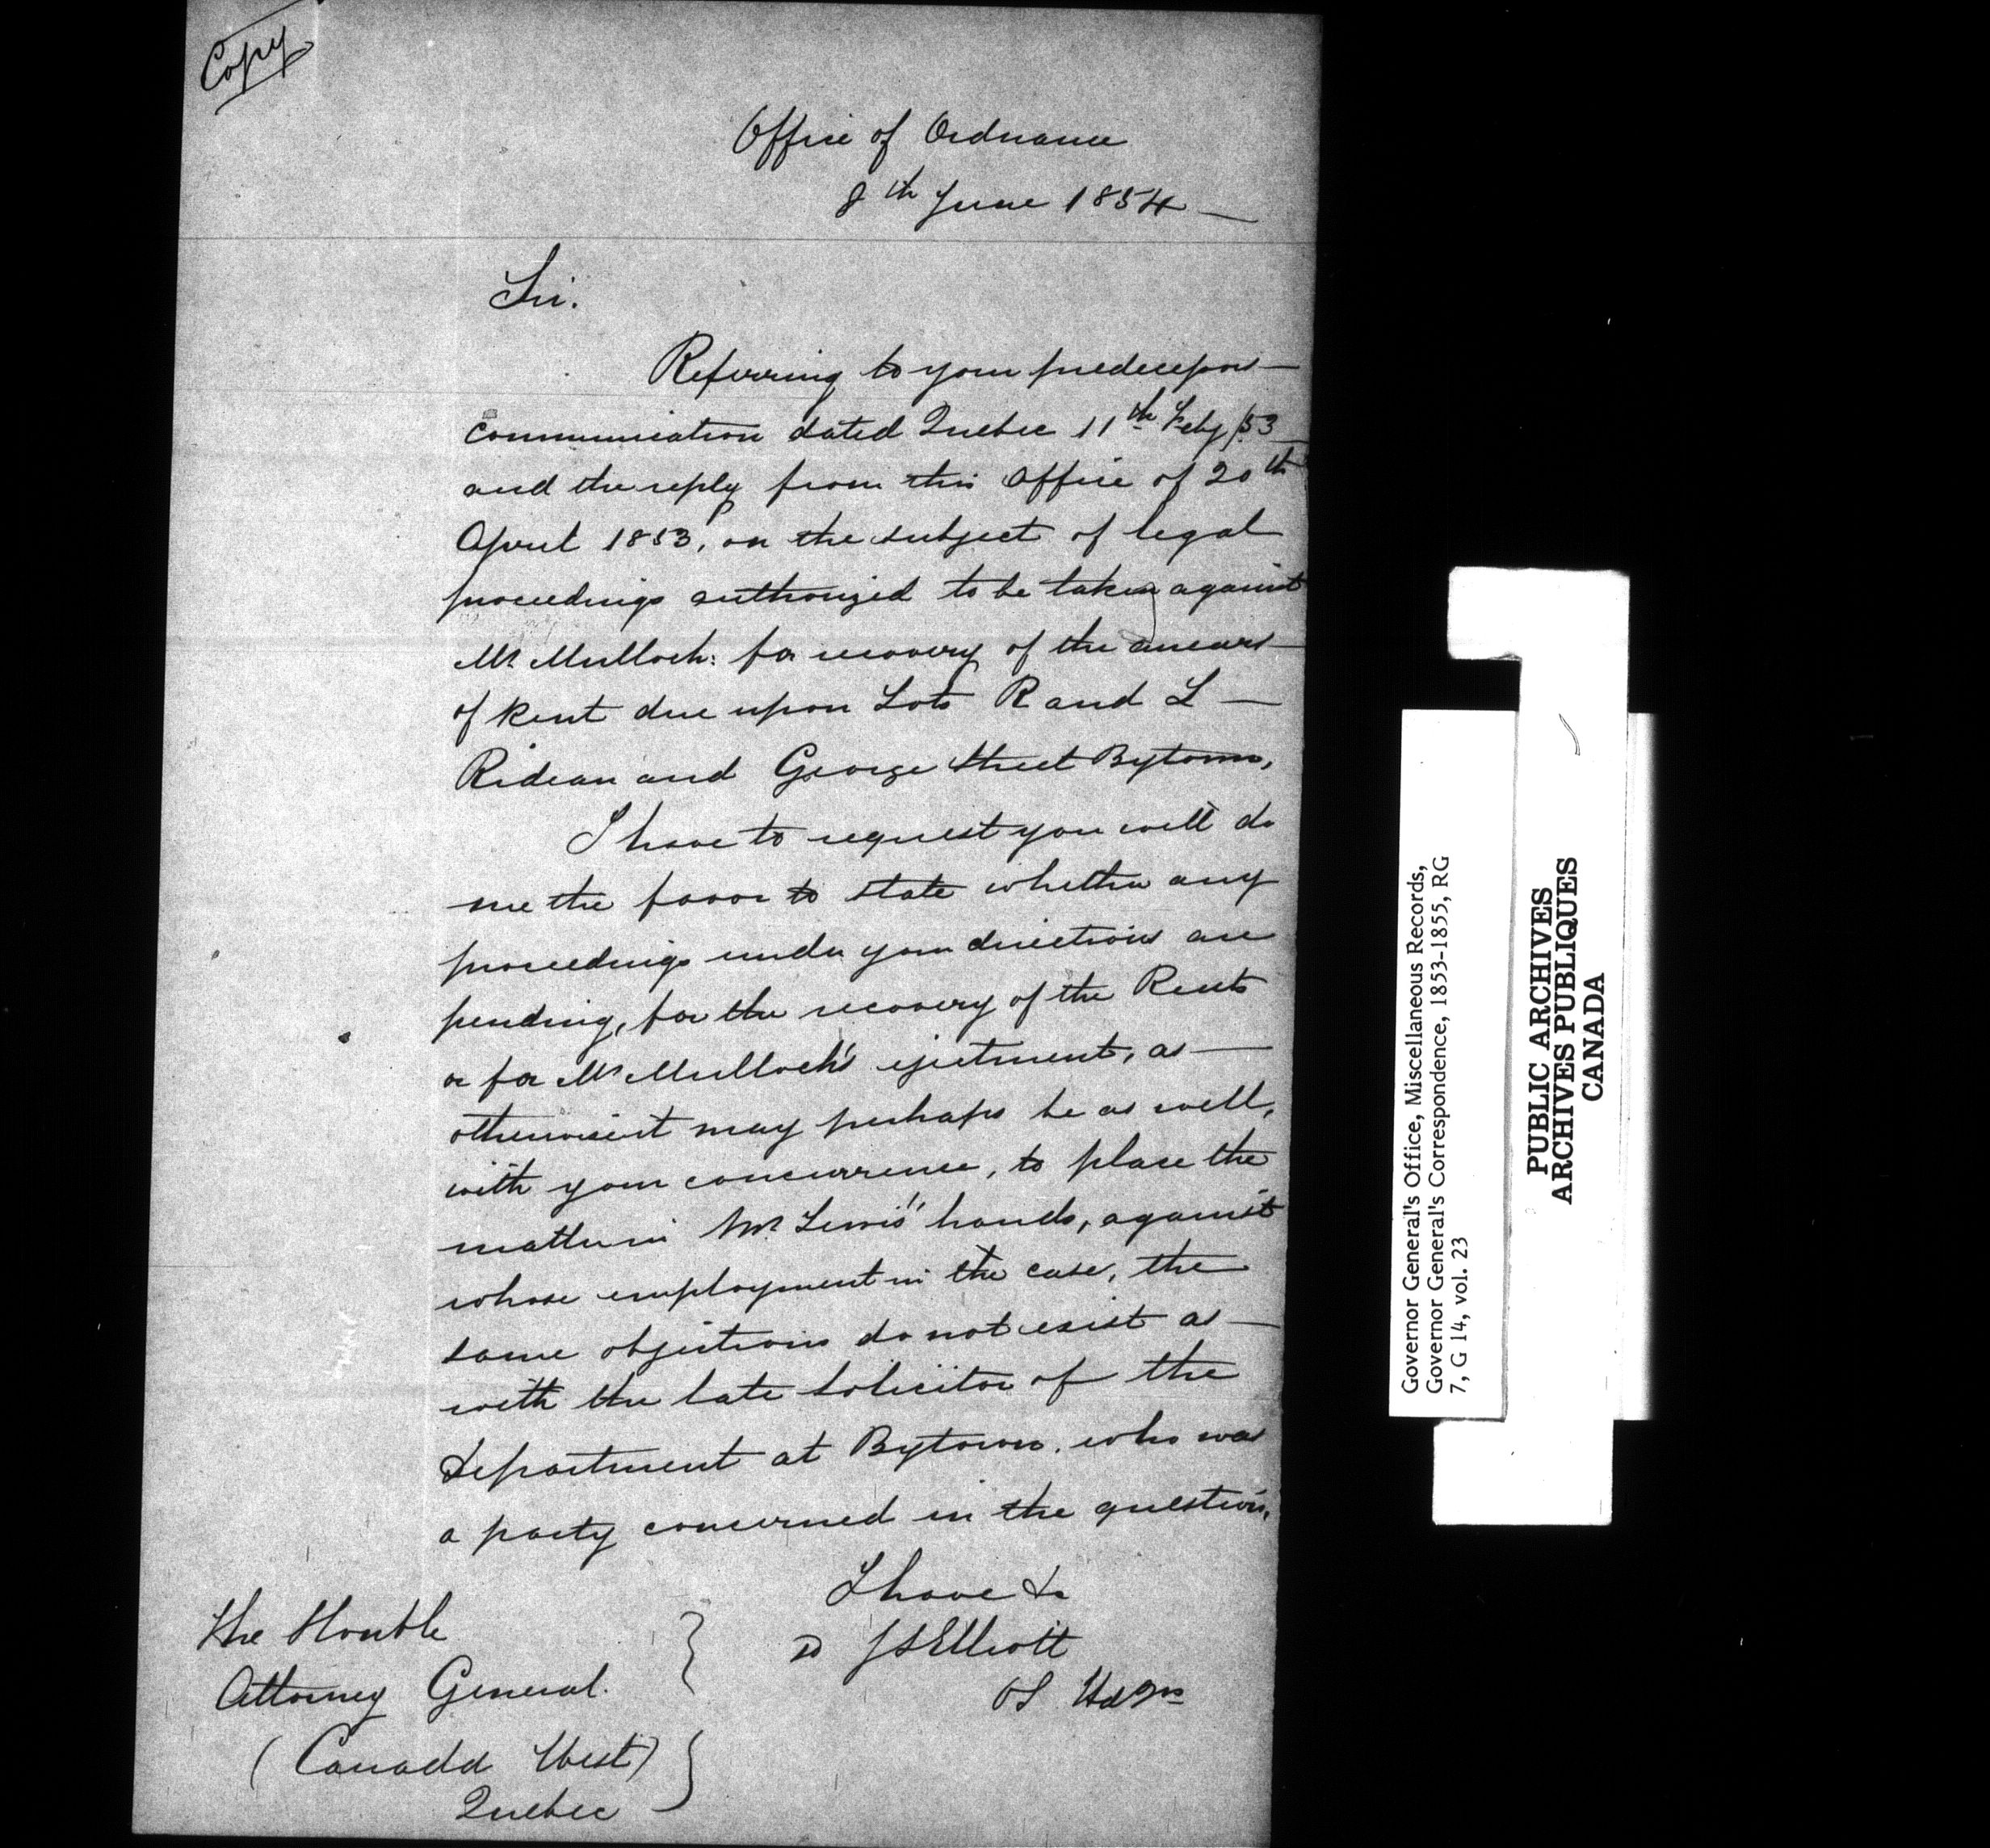 Copy
Office of Ordnance
8th June 1854 —
Sir.
Referring to your predecessors —
communication dated Quebec 11th Feby /53
and the reply from this Office of 20th
April 1853, on the subject of legal
proceedings authorized to be taken against
Mr Mulloch: for recovery of the arrears
of Rent due upon Lots R and L —
Rideau and George Street Bytown,
I have to request you will do
me the favor to state whether any
proceedings under your directions are
pending, for the recovery of the Rents
or for Mr Mulloch's ejectment, as —
otherwise it may perhaps be as well,
with your concurrence, to place the
matter in Mr Lewis' hands, against
whose employment in the case, the
same objections do not exist as —
with the late Solicitor of the
department at Bytown, who was
a party concerned in the question.
I have &c
JSElliott
OS Hd Qrs
The Honble
Attorney General.
(Canada West)
Quebec
Governor General's Office, Miscellaneous Records,
Governor General's Correspondence, 1853-1855, RG
7, G 14, vol. 23
PUBLIC ARCHIVES
ARCHIVES PUBLIQUES
CANADA